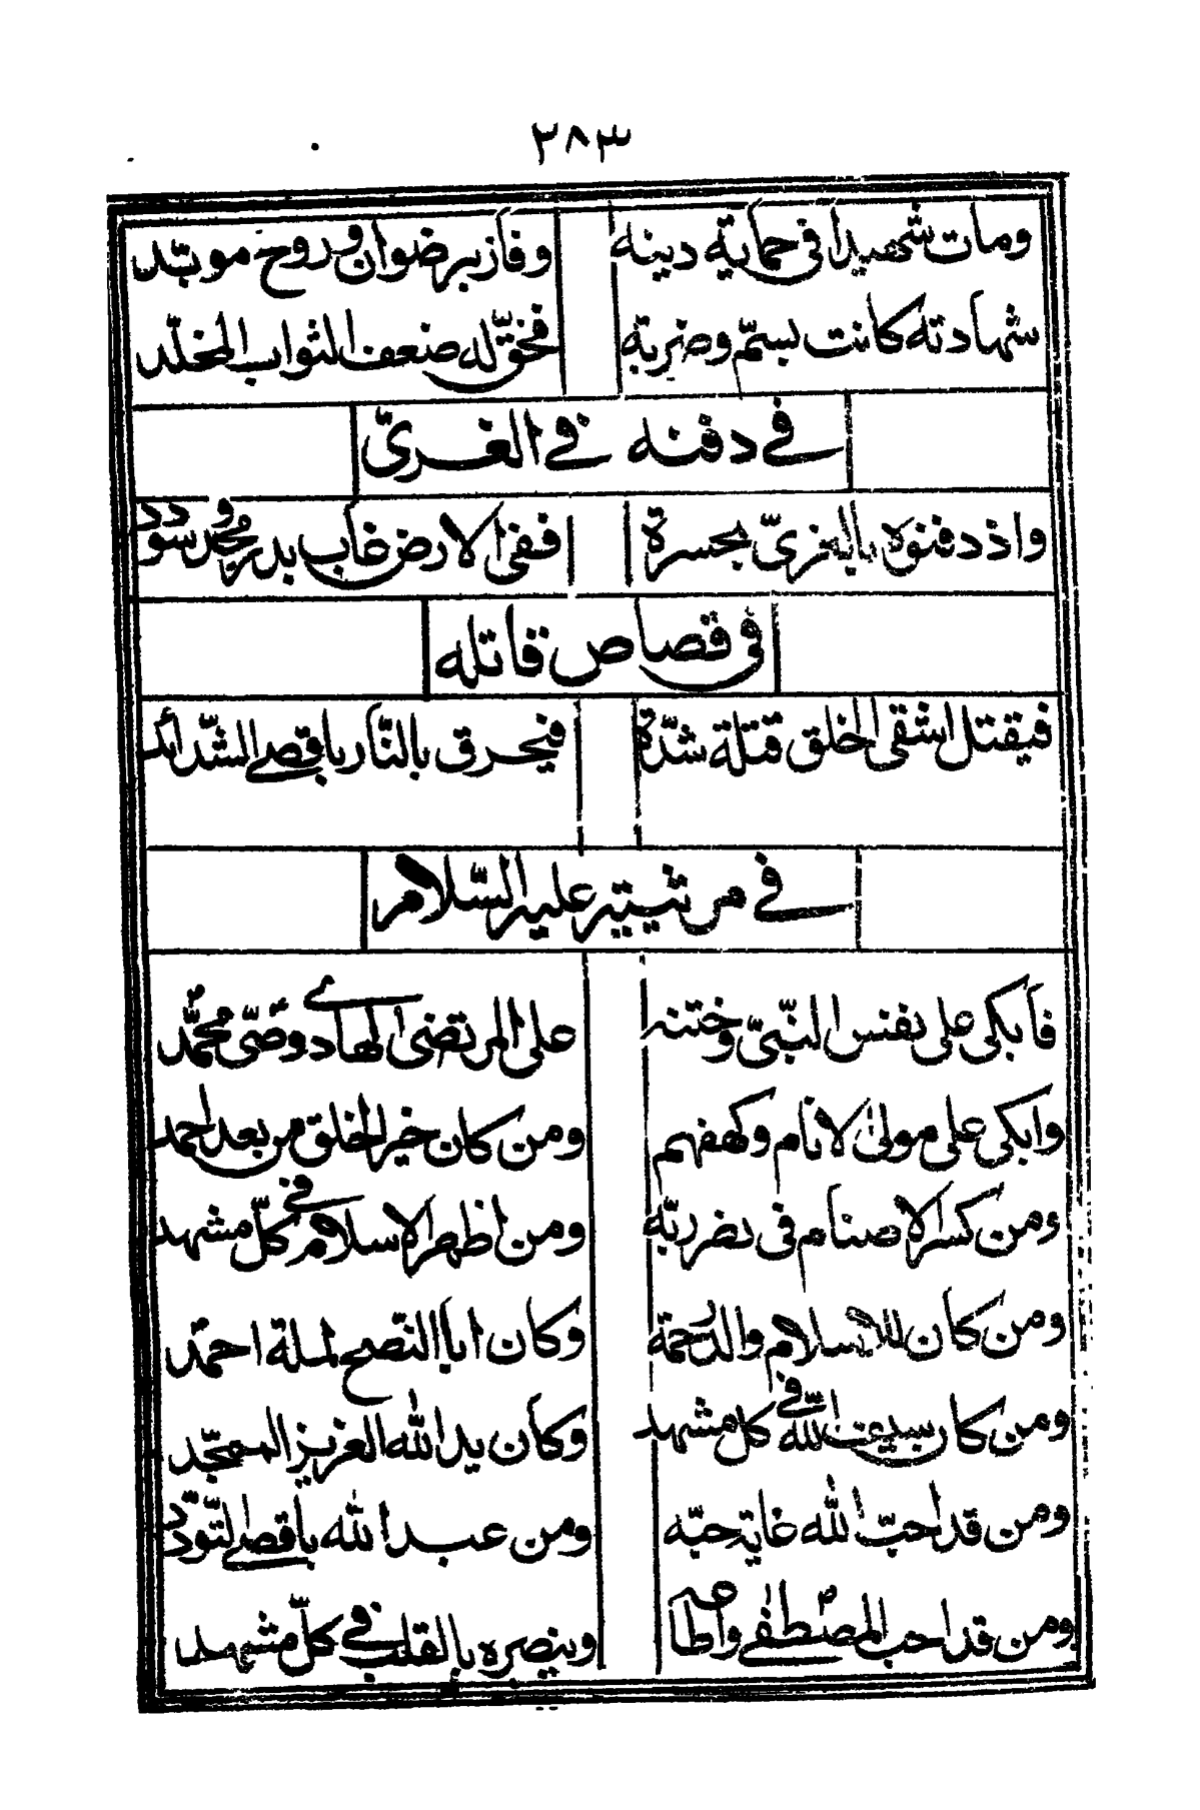 ٣٨٣
ومات شهيدا في حماية دينه وفاز برضوان وروح مويّد
شهادته كانت بسمّ وضربة فحقّ له ضعف الثواب المخلّد
في دفنه في الغريّ
واذ دفنوه بالغريّ بحسرة ففي الارض غاب بدر محمد سودد
في قصاص قاتله
فيقتل اشقى الخلق قتلة شدّة فيحرق بالنّار باقصى الشّدائد
في مرثيته عليه السّلام
فأبكى على نفس النّبيّ وختنه على المرتضى الهادي وصّى محمّد
وابكى على مولى الانام وكهفهم ومن كان خير الخلق من بعد احمد
ومن كسر الاصنام في نصر ربّه ومن اظهر الاسلام في كلّ مشهد
ومن كان للاسلام والد رحمة وكان ابا النّصح لملة احمد
ومن كان سيف الله في كل مشهد وكان يد الله العزيز الممجّد
ومن قد احبّ الله غاية حبّه ومن عبد الله باقصى التّودّد
ومن قد احب المصطفى واطاعه وينصره بالقلب في كلّ مشهد